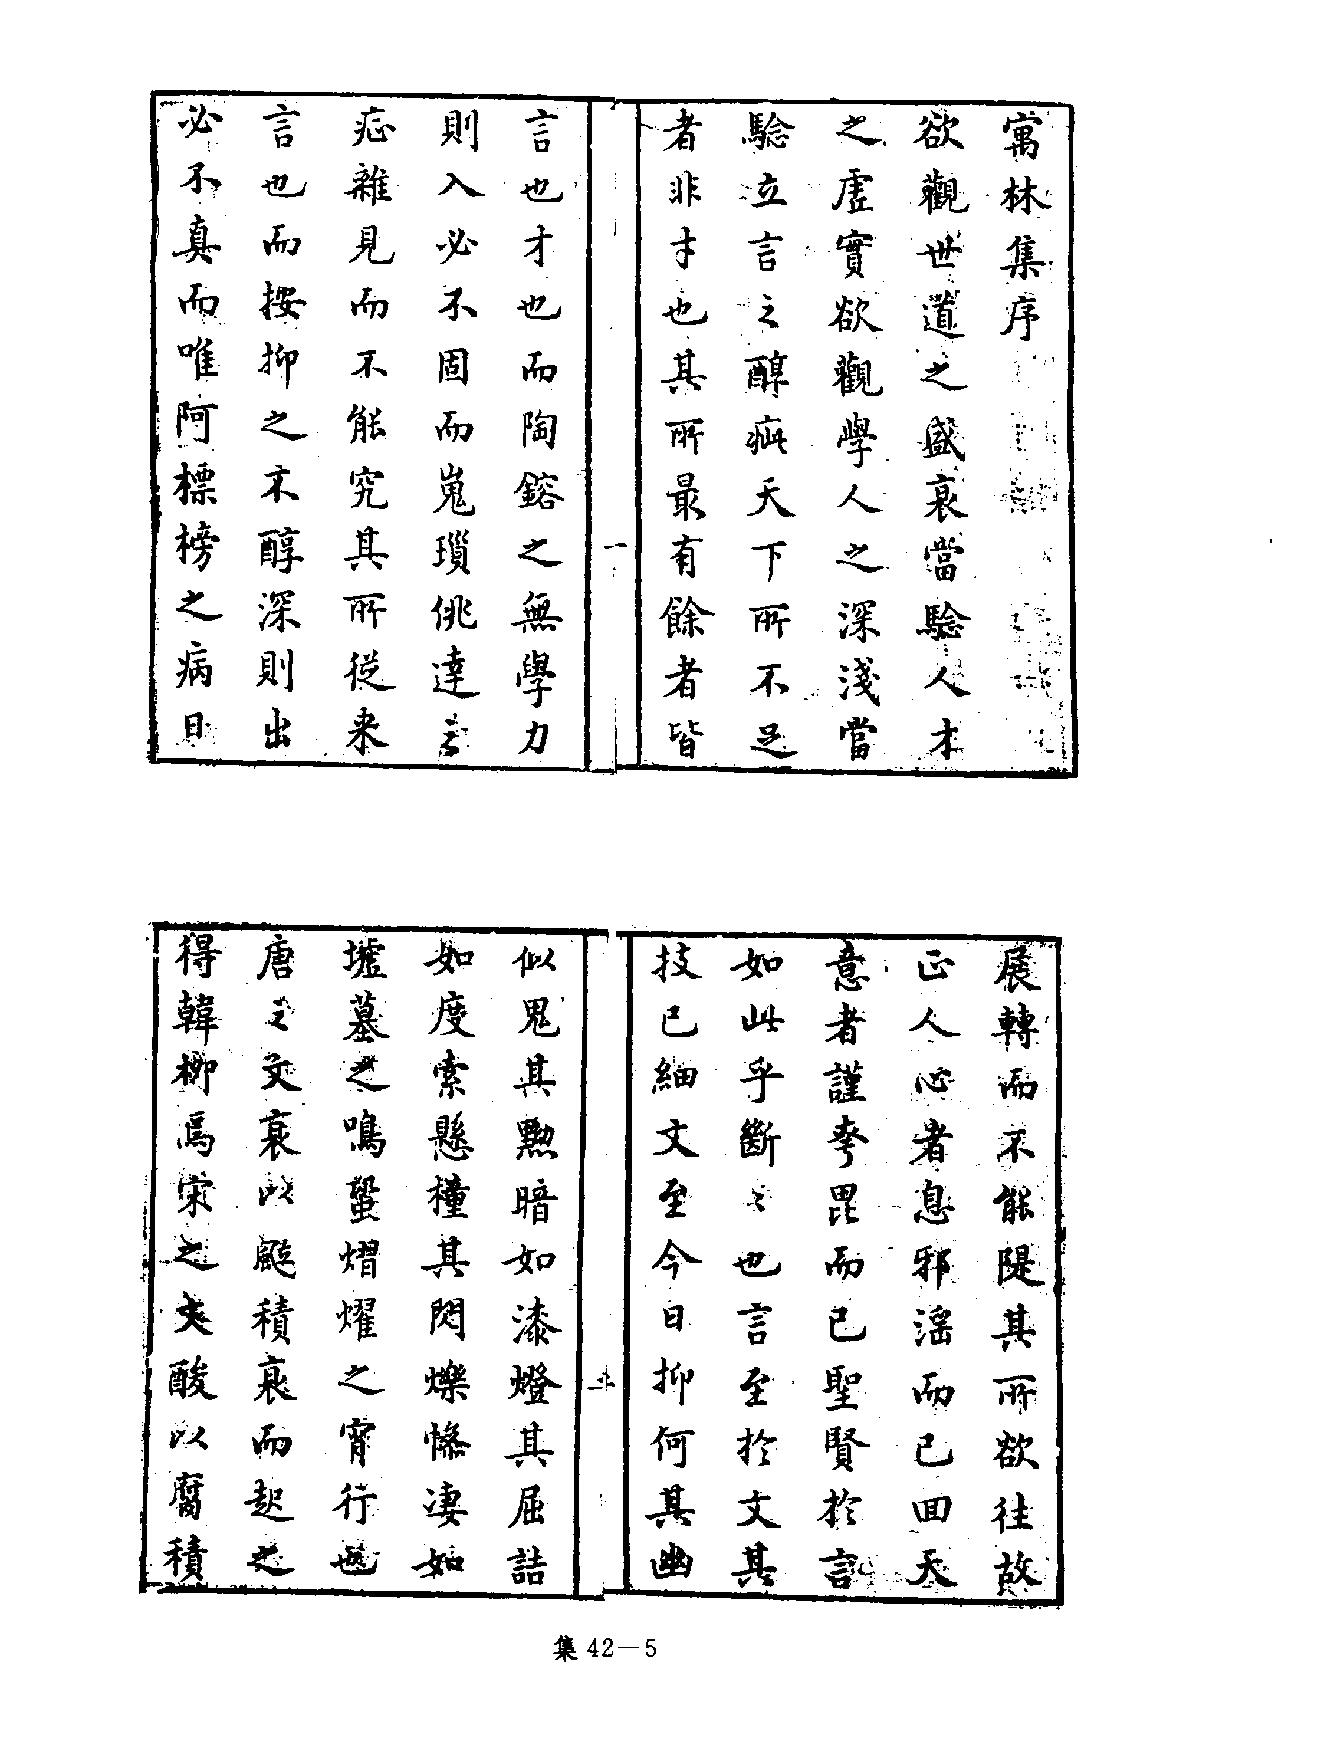 寓林集序
欲觀世道之盛衰當驗人才
之虛實欲觀學人之深淺當
驗立言之醇疵天下所不足
者非才也其所最有餘者皆
一
言也才也而陶鎔之無學力
則入必不固而嵬瑣佻達言
疵雜見而不能究其所從来
言也而按抑之不醇深則出
必不真而唯阿標榜之病日
展轉而不能隄其所欲往故
正人心者息邪滛而已回天
意者謹孝毘而已聖賢於言
如此乎斷〻也言至於文其
技已細文至今日抑何其幽
似鬼其黝暗如漆燈其屈詰
如度索懸橦其閃爍慘凄如
墟墓之鳴蛩熠燿之宵行也
唐之文衰以颩積衰而起之
得韓柳焉宋之文酸以腐積
集 42—5